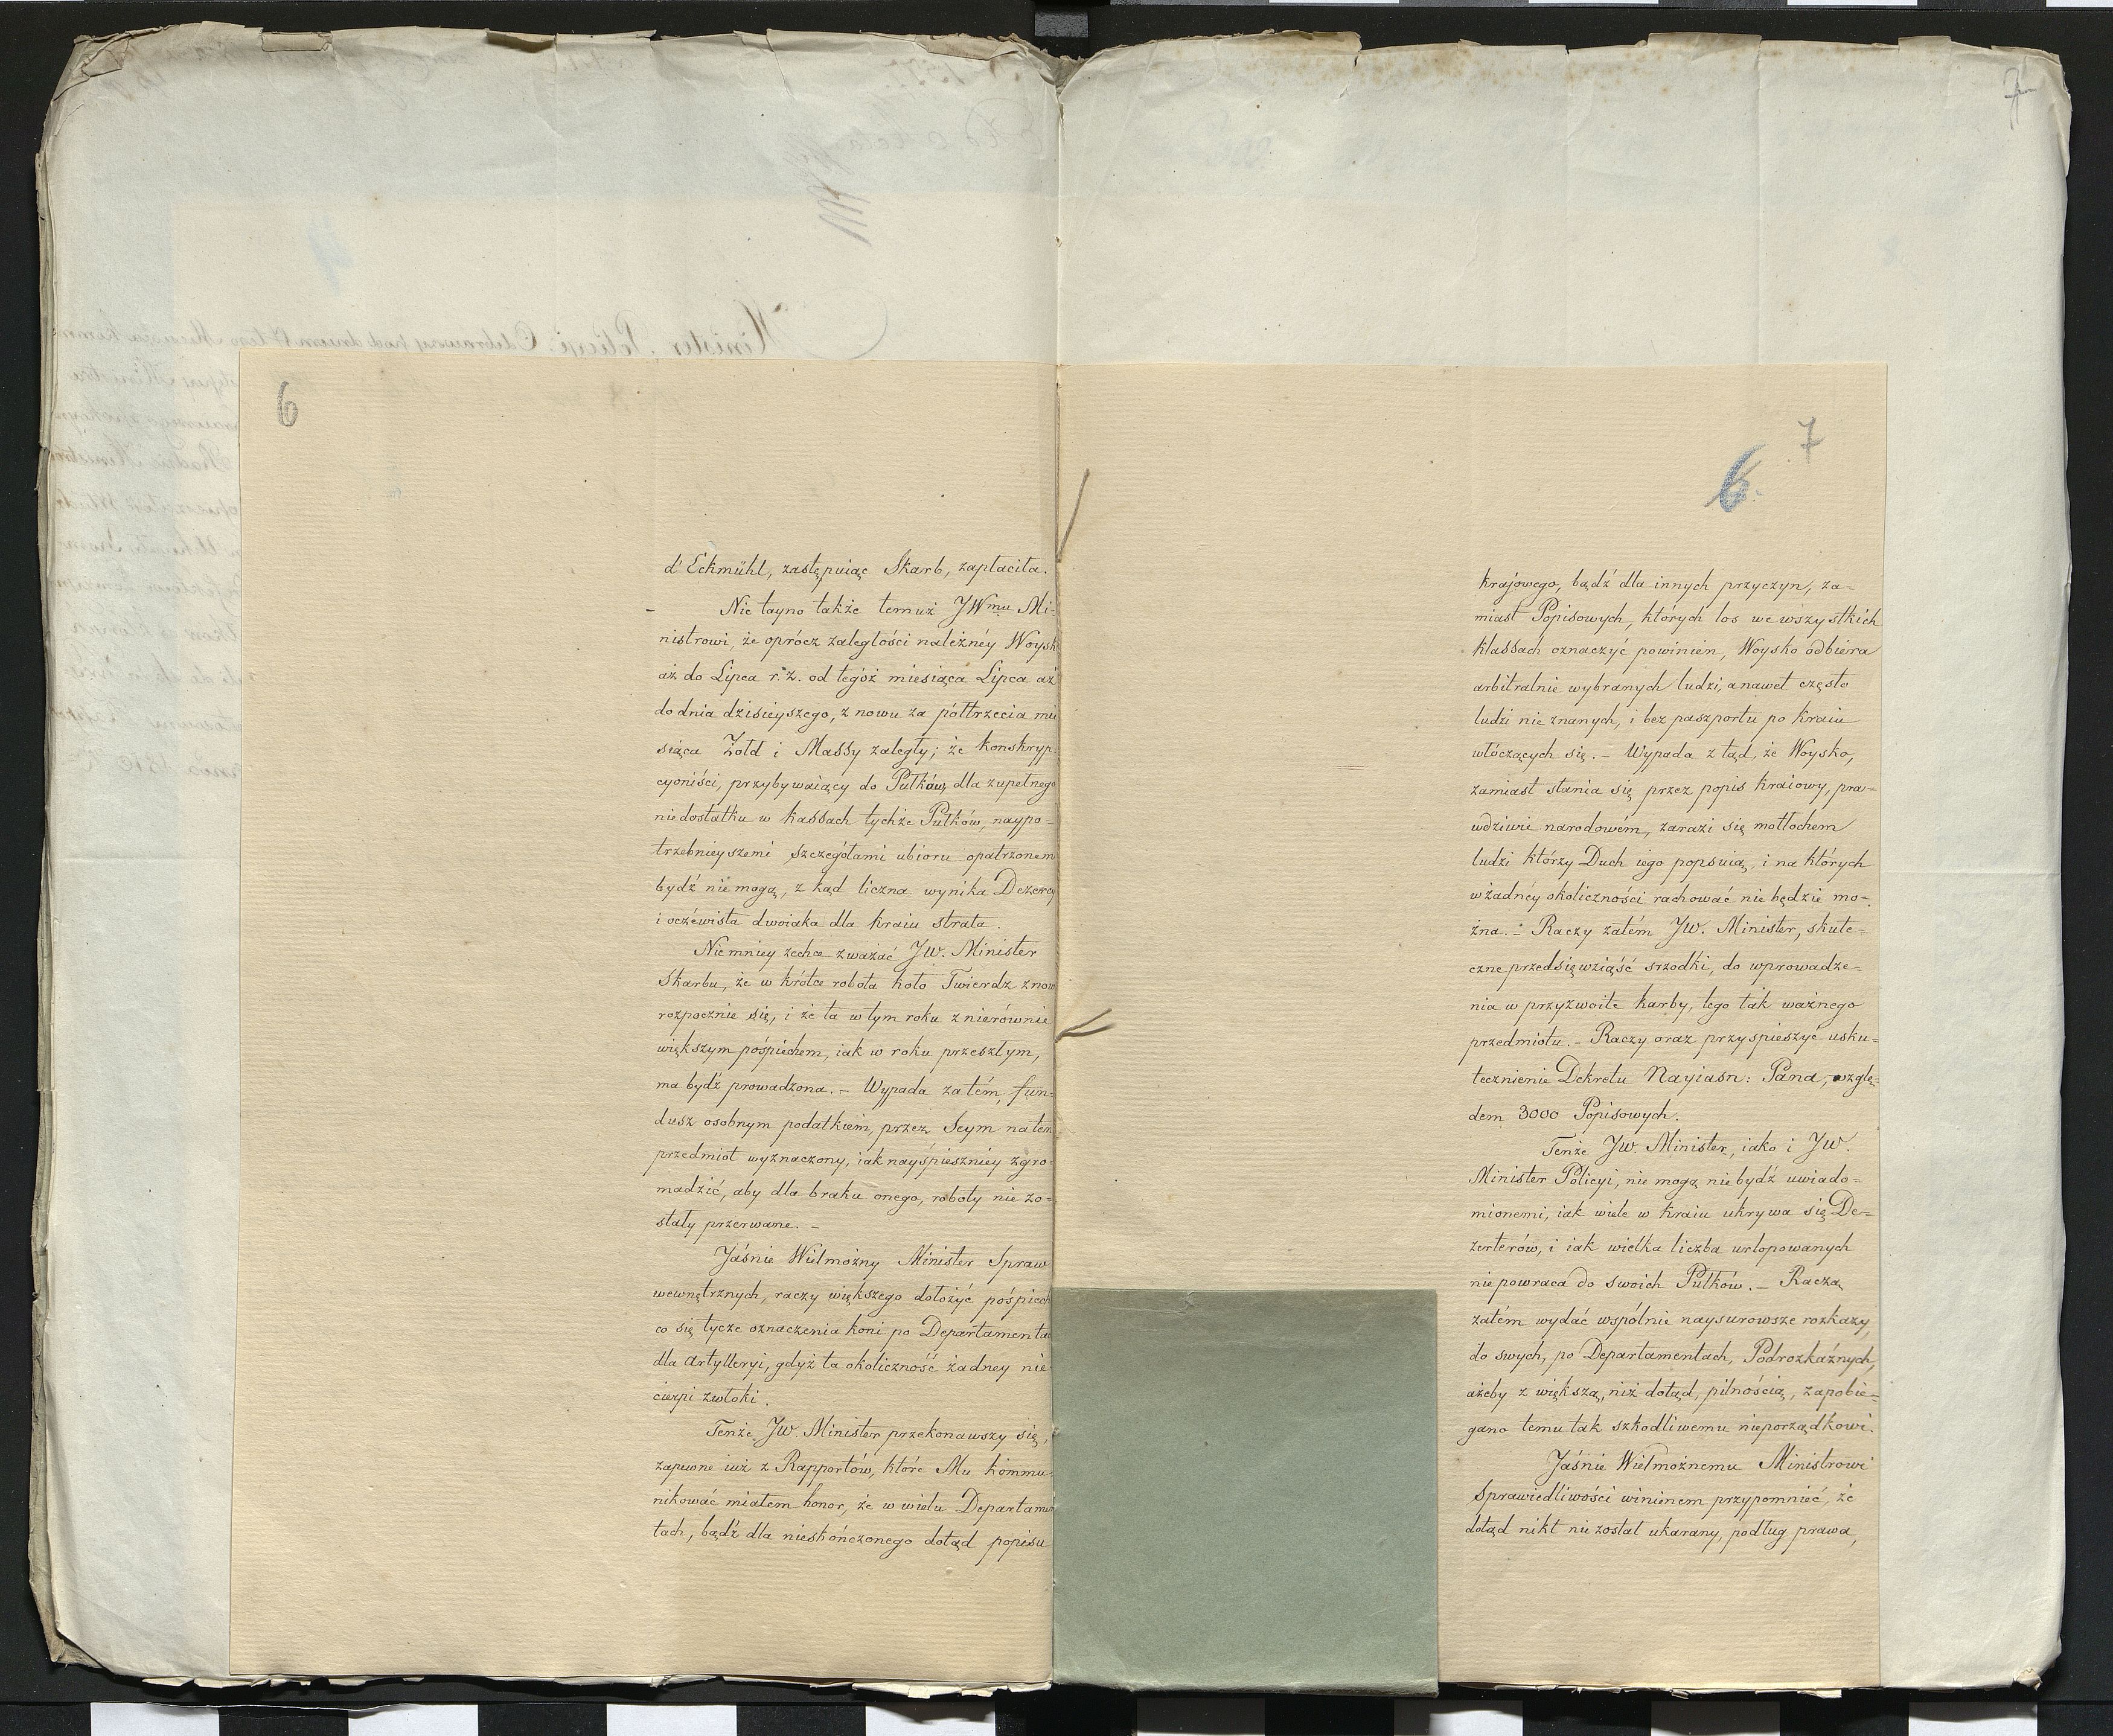 6
d'Eckmühl, zastępuiąc Skarb, zapłaciła.
Nie tayno także temuż JWmu Mi-
nistrowi, że oprócz zaległości należnéy Woysk
aż do Lipca r. z. od tegóż miesiąca Lipca aż
do dnia dzisieyszego, znowu za półtrzecia mie
siąca Żołd i Massy zaległy; że konskryp-
cyoniści, przybywaiący do Pułków, dla zupełnego
niedostatku w kassach tychże Pułków, naypo=
trzebnieyszemi szczegółami ubioru opatrzonem
bydź nie mogą, z kąd liczna wynika Dezercy
i oczéwista dwoiaka dla kraiu strata.
Niemniey zechce zważać JW. Minister
Skarbu, że w krótce robota koło Twierdz znow
rozpocznie się, i że ta w tym roku z nierównie
większym pośpiechem, iak w roku przeszłym,
ma bydź prowadzona. – Wypada zatém, fun-
dusz osobnym podatkiem, przez Seym na ten
przedmiot wyznaczony, iak nayśpieszniey zgro-
madzić, aby dla braku onego, roboty nie zo=
stały przerwane. –
Jáśnie Wielmożny Minister Spraw
wewnętrznych, raczy większego dołożyć pośpiech
co się tycze oznaczenia koni po Departamenta
dla Artylleryi, gdyż ta okoliczność żadney nie
cierpi zwłoki.
Tenże JW. Minister przekonawszy się,
zapewne iuż z Rapportów, które Mu kommu-
nikować miałem honor, że w wielu Departamen
tach, bądź dla nieskończonego dotąd popisu
7
7
6.
krajowego, bądź dla innych przyczyn, za=
miast Popisowych, których los we wszystkich
klassach oznaczyć powinien, Woysko odbiera
arbitralnie wybranych ludzi, a nawet często
ludzi nie znanych, i bez paszportu po kraiu
włóczących się. – Wypada z tąd, że Woysko,
zamiast stania się przez popis kraiowy, pra=
wdziwie narodowém, zarazi się motłochem
ludzi którzy Duch iego popsuią, i na których
w żadnéy okoliczności rachować nie będzie mo=
żna. – Raczy zatém JW. Minister, skute=
czne przedsięwziąść srzodki, do wprowadze=
nia w przyzwoite karby, tego tak ważnego
przedmiotu. – Raczy oraz przyspieszyć usku=
tecznienie Dekretu Nayiasn: Pana, wzglę=
dem 3000 Popisowych.
Tenże JW. Minister, iako i JW.
Minister Policyi, nie mogą nie bydź uwiado=
mionemi, iak wiele w kraiu ukrywa się De=
zerterów, i iak wielka liczba urlopowanych
nie powraca do swoich Pułków. – Raczą
zatém wydać wspólnie naysurowsze rozkazy,
do swych, po Departamentach, Podrozkaźnych,
ażeby z większą, niż dotąd, pilnością, zapobie=
gano temu tak szkodliwemu nieporządkowi.
Jáśnie Wielmożnemu Ministrowi
Sprawiedliwości winienem przypomnieć, że
dotąd nikt nie został ukarany, podług prawa,